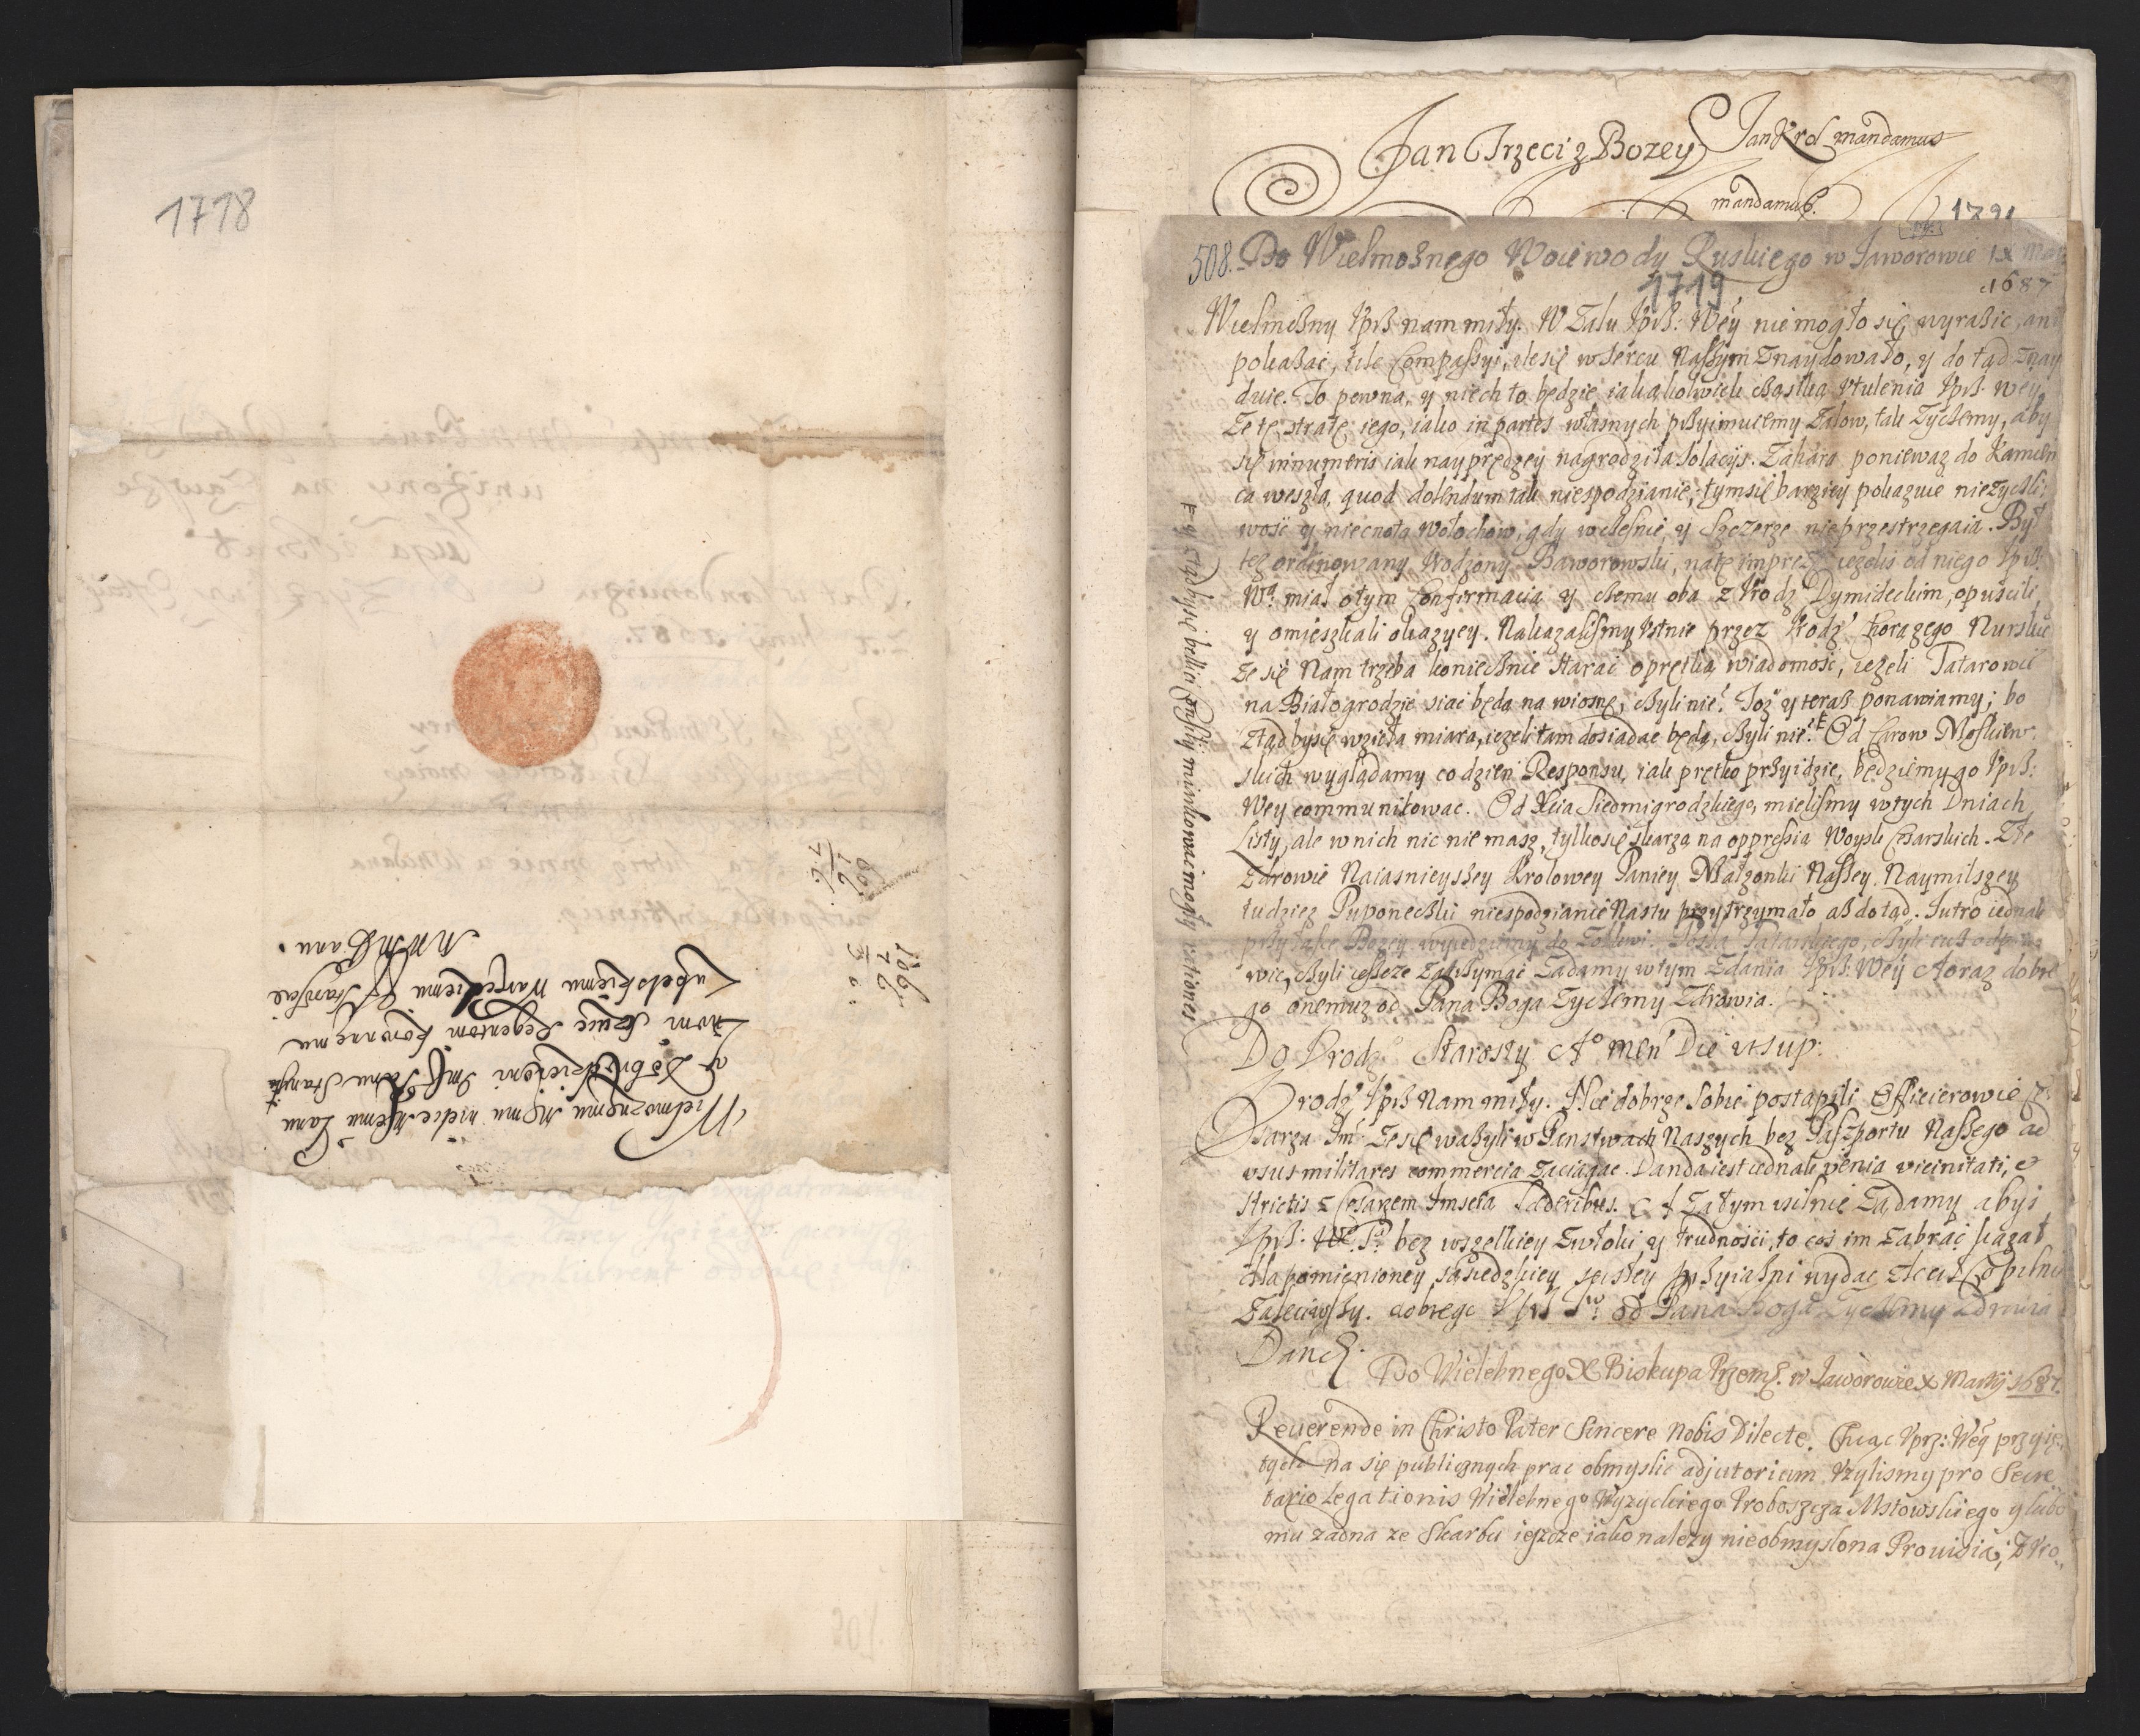 1718
Wielmożnemu Memu wielce Mśemu Panu
y Dobrodzieiowi Imśc Panu Stanysł
Regentowi Koronnemu
Lubelskiemu Warszkiemu Staroście
MWMPanu.
Jan Trzeci z Bozey Jan Krol mandamus
mandamus.
1721
508. Do Wielmożnego Woiewody Ruskiego w Jaworowie IX Mar
1687
1719
Wielmożny Uprz nam miły. W Zalu Uprz: Wey nie mogło się wyrazic, ani
pokazać, tyle Compassyi, ile się w sercu Naszym Znaydowało, y do tąd Znay
duie. To pewna, y niech to będzie iakążkolwiek cząstką Utulenia Uprz Wey,
Ze tę stratę iego, iako in partes własnych przyimuiemy Zalow, tak Zyczemy, aby
się innumeris iak nayprędzey nagrodziła Solacijs. Zahara poniewaz do Kamień
ca weszła, quod dolendum tak niespodzianie, tym się barziey pokazuie niezyczli:
wość y niecnota Wołochow, gdy wcześnie y szczerze nie przestrzegaią. Był
tez ordinowany Urodzony Baworowski, na tę imprezę iezeli od niego Uprz
Wa miał o tym Confirmacią y czemu oba z Urodz Dymideckim, opuścili
y omieszkali okazyey. Nakazalismy Ustnie przez Urodz Chorązego Nurskie
Ze się Nam trzeba koniecznie starac o prętką wiadomość, iezeli Tatarowie
na Białogrodzie siac będą na wiosnę, czyli nie? Toz y teraz ponawiamy; bo
ztąd by się wzięła miara, iezeli tam dosiadac będą, czyli nie. Od Carow Moskiew:
skich wyglądamy co dzień Responsu, iak prętko przyidzie, będziemy go Uprz:
Wey communikowac. Od Xcia Siedmigrodzkiego, mielismy w tych Dniach
Listy, ale w nich nic nie masz, tylko się skarzą na oppressią Woysk Cesarskich. Złe
Zdrowie Naiasnieyszey Krolowey Paniey Małzonki Naszey Naymilszey
tudziez Puponeczki niespodzianie Nas tu przytrzymało asz do tąd. Jutro iednak
przy łasce Bozey wyiedziemy do Zołkwi. Posła Tatarskiego, czyli iusz odpra
wic, czyli ieszcze zatrzymac Ządamy w tym Zdania Uprz: Wey A oraz dobre
go onemuz od Pana Boga Zyczemy Zdrowia.
F y ztąd by się bellici Consilij miarkowac mogły rationes.
Do Urodz. Starosty Ao Men Die ut sup:
Urodz Uprz Nam miły. Nie dobrze sobie postąpili Officierowie Ce
sarza Jmci Ze się wazyli w Panstwach Naszych bez Paszportu Naszego ad
usus militares commercia zaciągac. Danda iest iednak venia vicinitati, et
strictis z Cesarzem Jmscią foederibus. Zatym usilnie Ządamy abys
Uprz: bez wszelkiey Zwłoki y trudności, to cos im Zabrac kazał
dla pomienioney sąsiedzkiey scisłey przyiazni wydac
Zaleciwszy. dobrego Uprz Tw. od Pana Boga Zyczemy Zdrowia
Dan
Do Wielebnego X Biskupa Przems. w Jaworowie X Martij 1687.
Reuerende in Christo Pater Sincere Nobis Dilecte. Chcąc Uprz: Wey przyię:
tych na się publicznych prac obmyslic adjutorium Uzylismy pro Secre
tario Legationis Wielebnego Wyzyckiego Proboszcza Mstowskiego y lubo
mu zadna ze Skarbu ieszcze iako nalezy nieobmyslona Prouisia; Z Uro